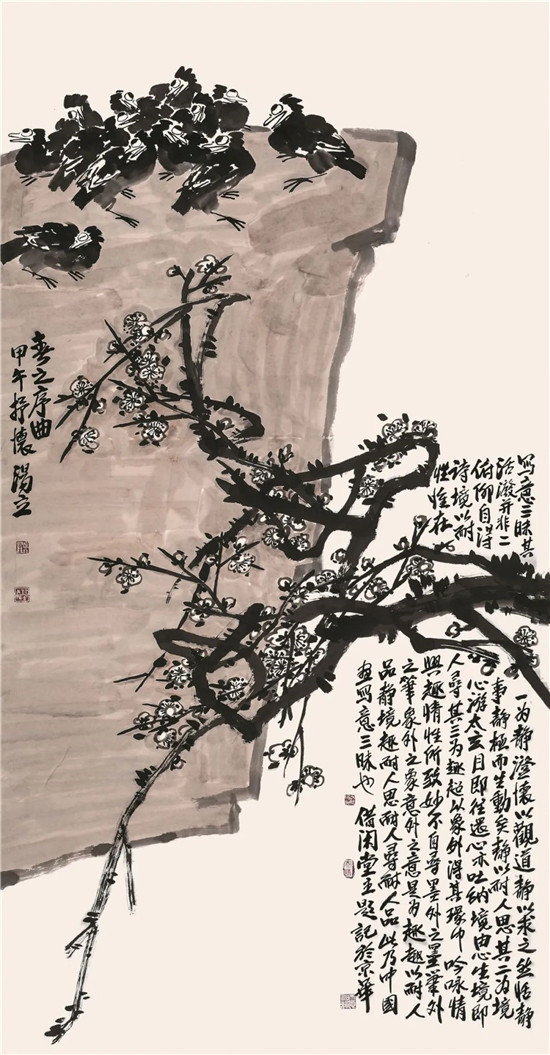 春之序曲
甲午抒懷
写意三昧其
活潑并非二
俯仰自得
诗境以耐
性惟在
一为静澄懷以觀道静以求之然恬静
事静極而生動矣静以耐人思其二为境
心游太玄目即往还心亦吐纳境由心生境即
人尋其三为趣超以象外得其環中吟咏情
興趣情性所致妙不自尋墨外之墨筆外
之筆象外之象意外之意是为趣趣以耐人
品静境趣耐人思耐人尋耐人品此乃中國
画写意三昧也 借闲堂主题記於京華